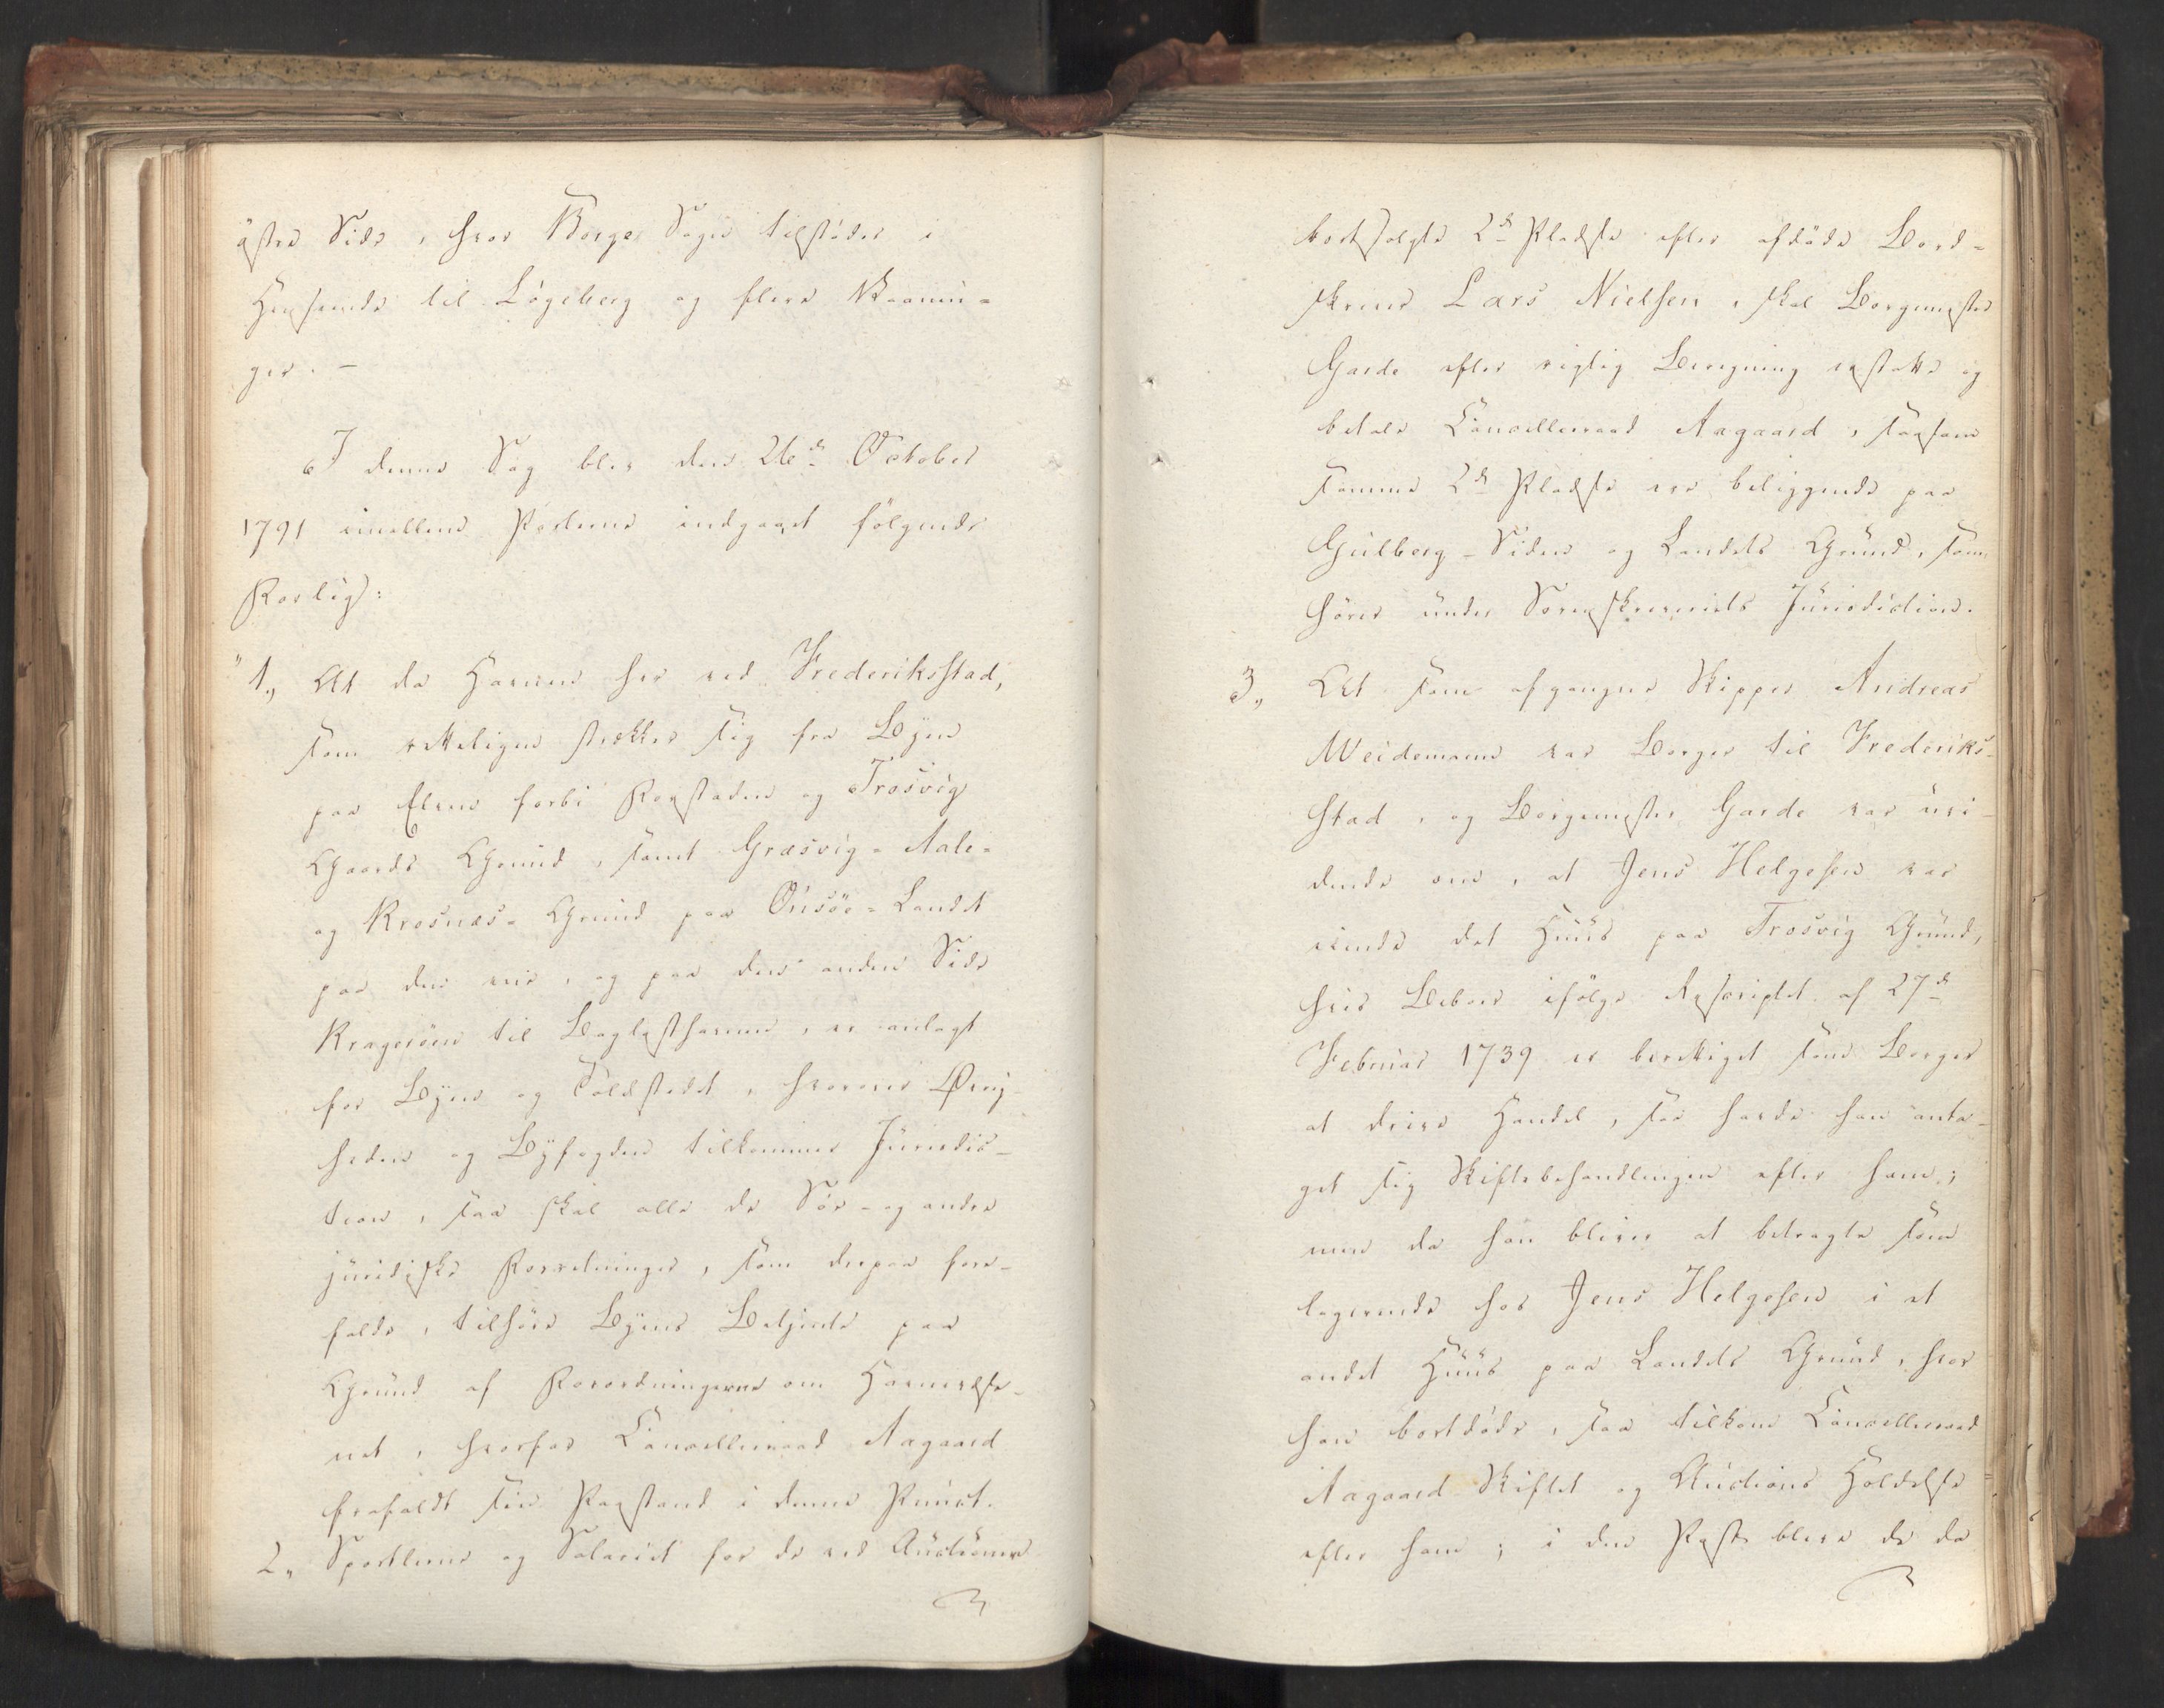 östre Side, hvor Borge Sogn tilstöder i
Henseende til Lögeberg og flere Vaanin=
ger. —
I denne Sag blev den 26de October
1791 imellem Parterne indgaaet fölgende
Forlig:
"1., At da Havnen her ved Frederiksstad,
som retteligen strækker sig fra Byen
paa Elven forbi Forstaden og Trosvig
Gaards Grund, samt Græsvig= Aale=
og Krosnæs= Grund paa Onsöe=Landet
paa den ene, og paa den anden Side
Krageröen til Baglästhavnen, er anlagt
for Byen og Toldstedet, hvorover Övrig
heden og Byfogden tilkommer Jurisdic-
tion, saa skal alle de Söe- og andre
juridiske Forretninger, som derpaa fore-
falde, tilhöre Byens Betjente paa
Grund af Forordningerne om Havnevæse-
net, hvorfor Cancelleraad Aagaard
frafaldt sin Paastand i denne Punct.
2., Sportlerne og Salariet for de ved Auctionen
bortsolgte 2de Pladse efter afdöde Bord=
skriver Lars Nielsen, skal Borgemester
Garde efter rigtig Beregning erstatte og
betale Cancelleraad Aagaard, saasom
samme 2de Pladse ere beliggende paa
Gulberg-Siden og Landets Grund, som
hörer under Sorenskriverens Jurisdiction.
3., At som afgangne Skipper Andreas
Weidemann var Borger til Frederiks-
stad, og Borgemester Garde var uvi-
dende om, at Jens Helgesen var
eiende det Huus paa Trosvig Grund,
hvis Beboer ifölge Rescriptet af 27de
Februar 1739 er berettiget som Borger
at drive Handel, saa havde han anta-
get sig Skiftebehandlingen efter ham;
men da han bliver at betragte som
logerende hos Jens Helgesen i et
andet Huus paa Landets Grund, hvor
han bortdöde, saa tilkom Cancelleraad
Aagaard Skiftet og Auctions Holdelse
efter ham; i den Post bleve de da